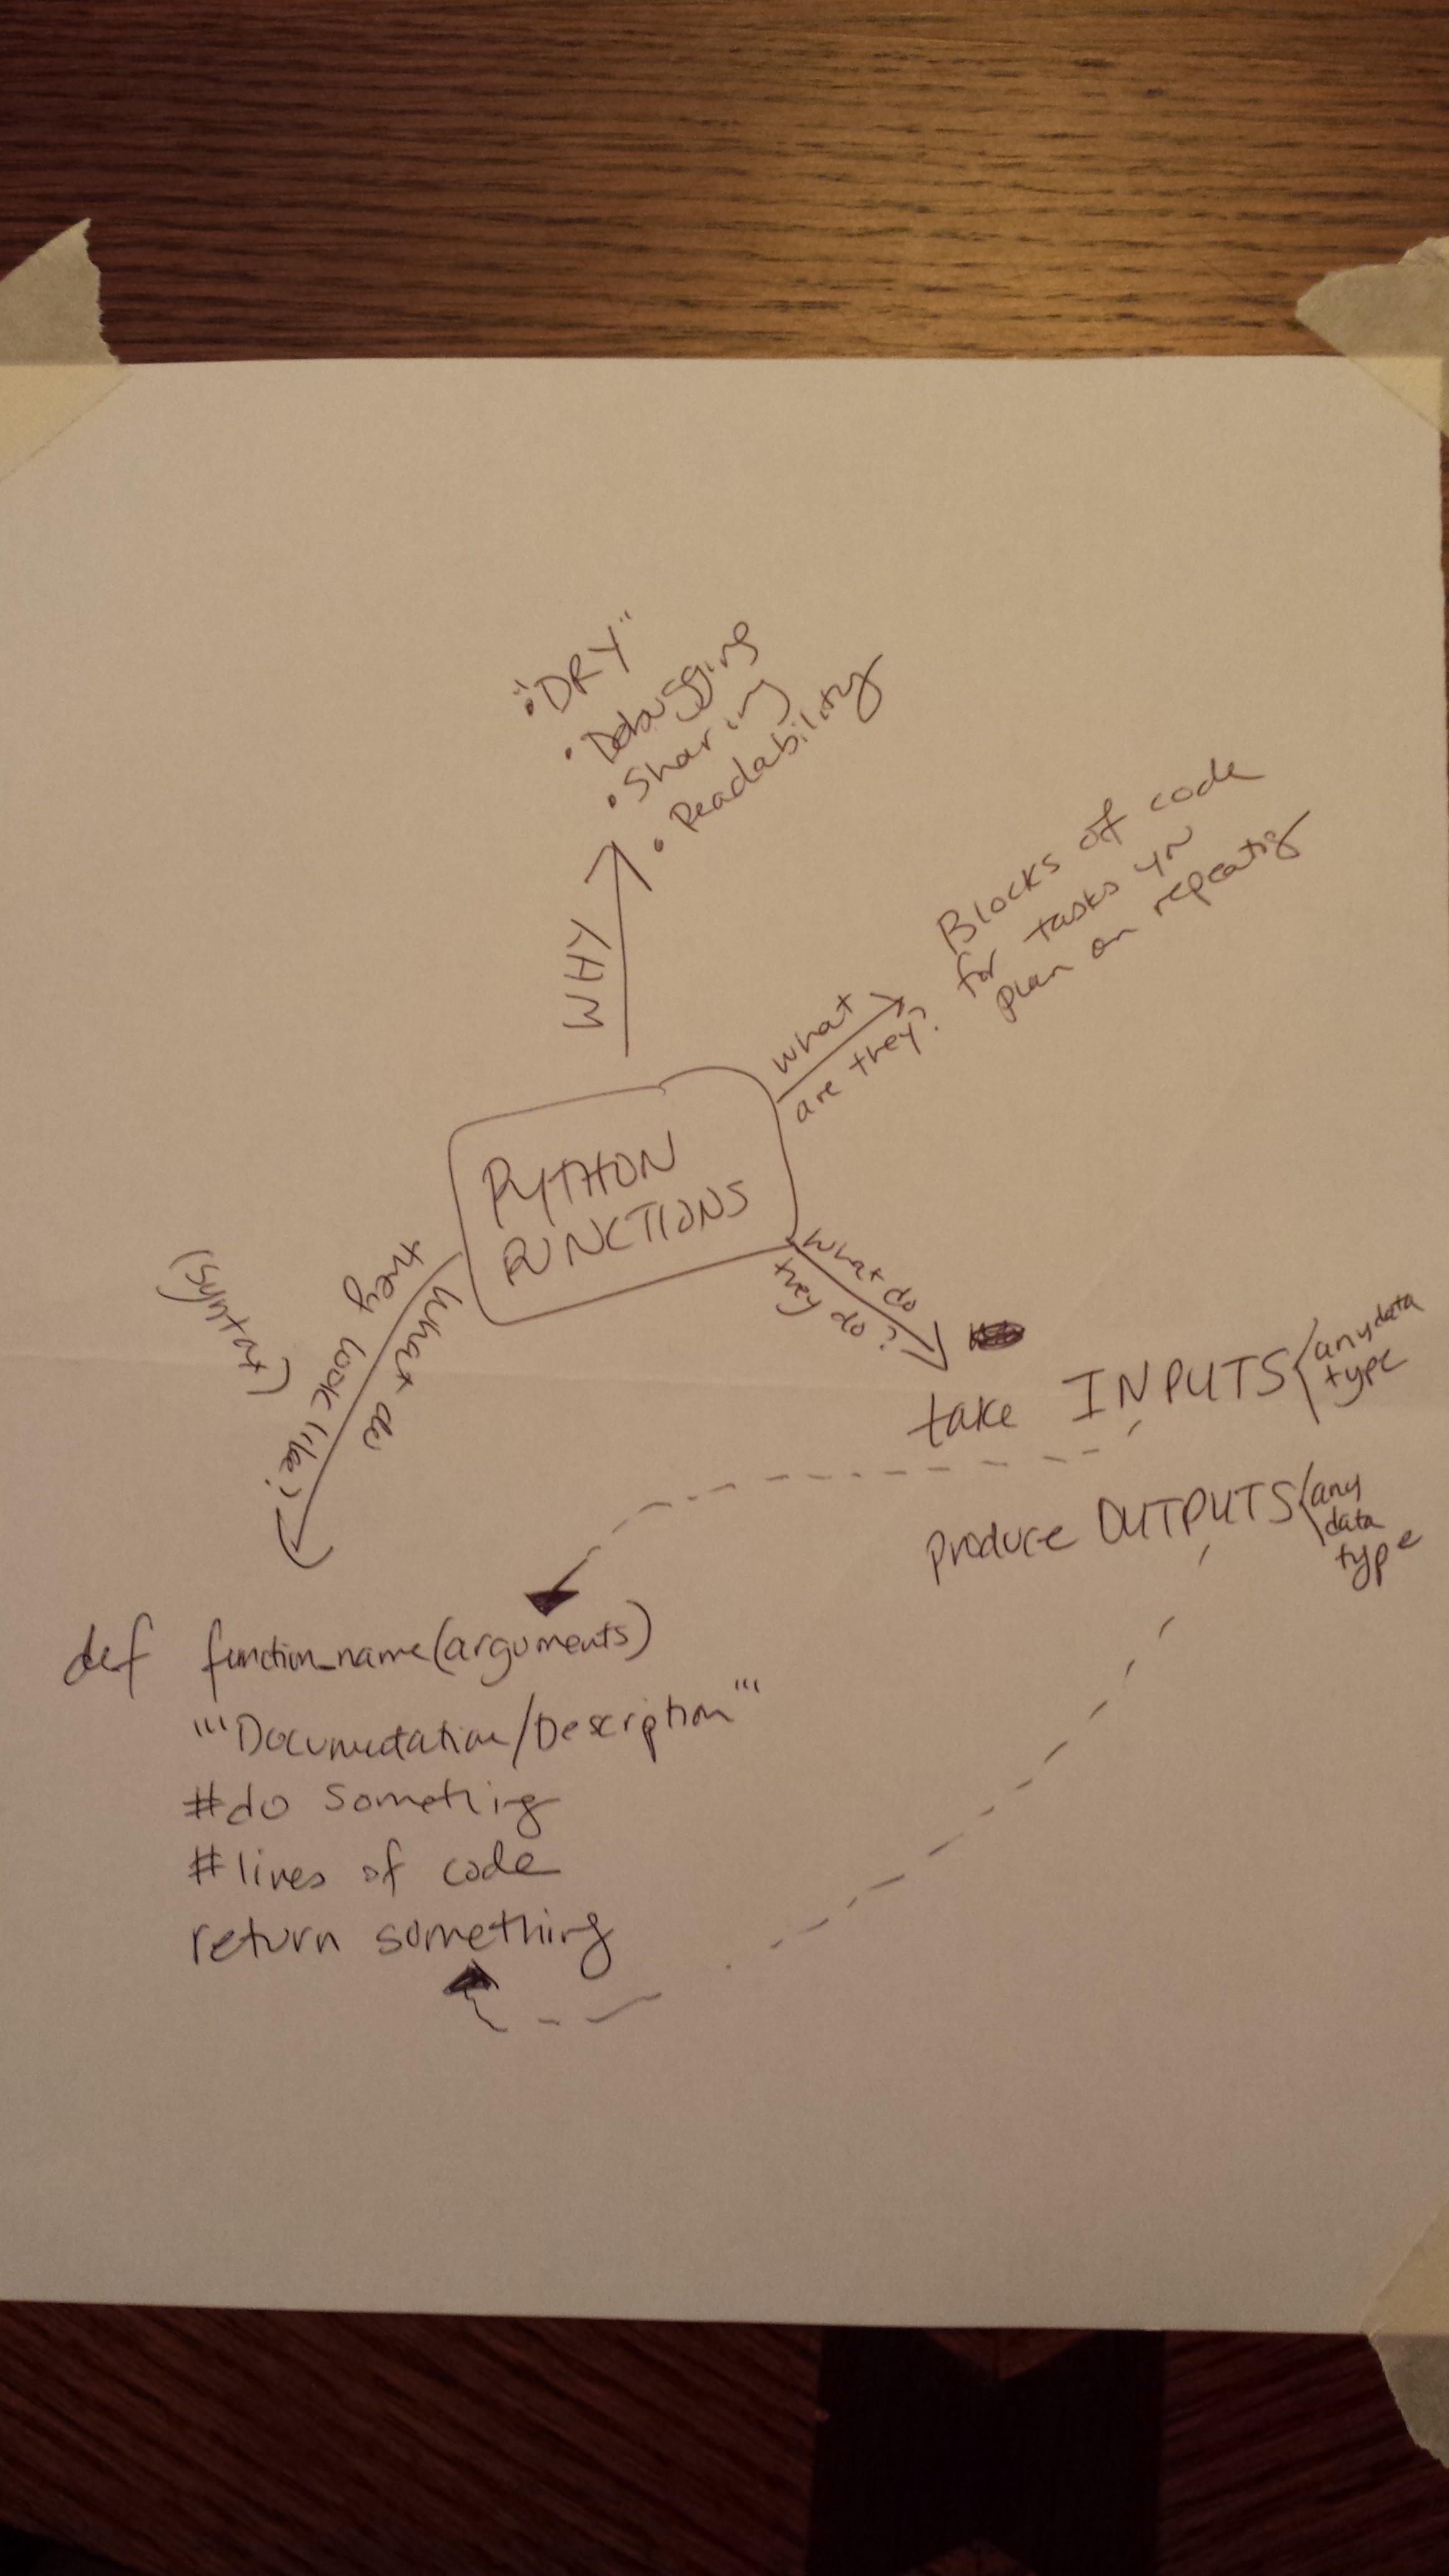 "DRY"
• Debugging
• Sharing
• Readability
WHY
Blocks of code
for tasks yn
plan on repeating
what
are they?
PYTHON
FUNCTIONS
what do
they do?
take INPUTS { any data
type
produce OUTPUTS { any
data
type
(syntax)
what do
they look like?
def function_name(arguments)
"""Documentation/Description"""
#do something
#lines of code
return something